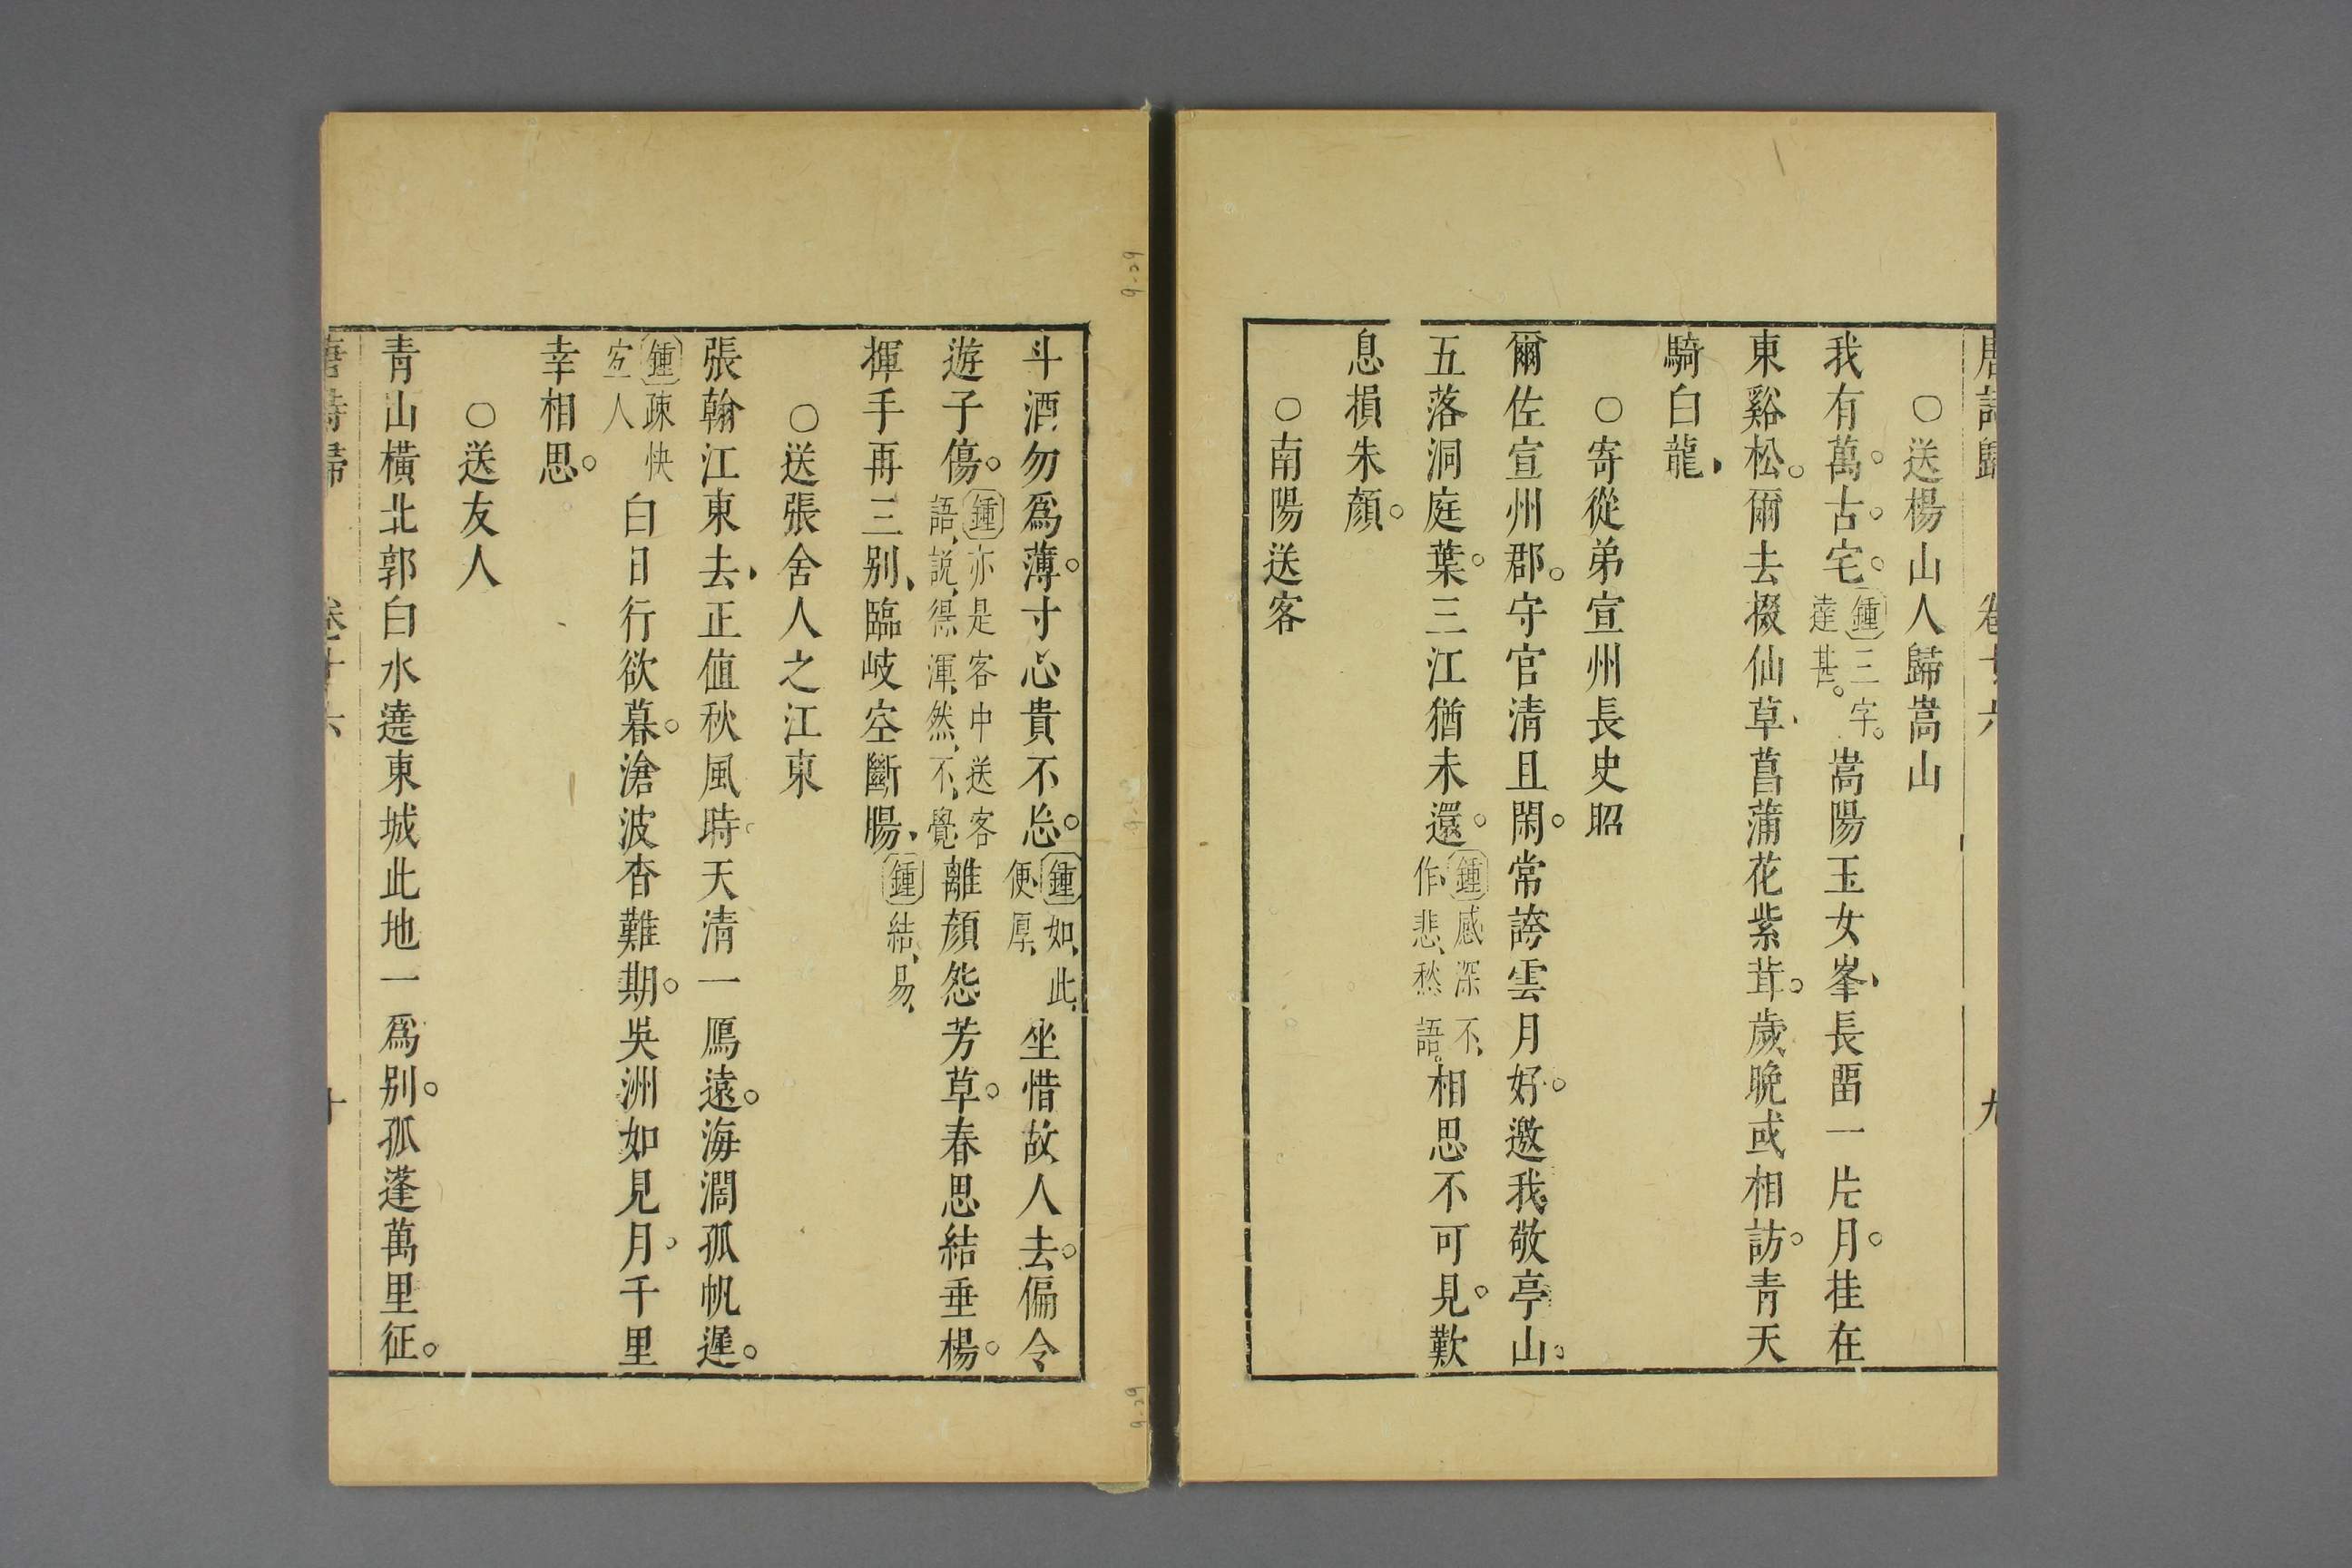 唐詩歸 卷十六 九
○送楊山人歸嵩山
我有萬古宅鍾三字達甚嵩陽玉女峯長畱一片月挂在
東谿松爾去掇仙草菖蒲花紫茸歲晩或相訪青天
騎白龍
○寄從弟宣州長史昭
爾佐宣州郡守官清且閑常誇雲月好邀我敬亭山
五落洞庭葉三江猶未還鍾感深不作悲愁語相思不可見歎
息損朱顏
○南陽送客
斗酒勿爲薄寸心貴不忘鍾如此便厚坐惜故人去偏令
遊子傷鍾亦是客中送客語說得渾然不覺離顏怨芳草春思結垂楊
揮手再三别臨岐空斷腸鍾結易
○送張舍人之江東
張翰江東去正值秋風時天清一鴈遠海濶孤帆遲
鍾疎快宜人白日行欲暮滄波杳難期吳洲如見月千里
幸相思
○送友人
青山橫北郭白水遶東城此地一爲别孤蓬萬里征
唐詩歸 卷十六 十